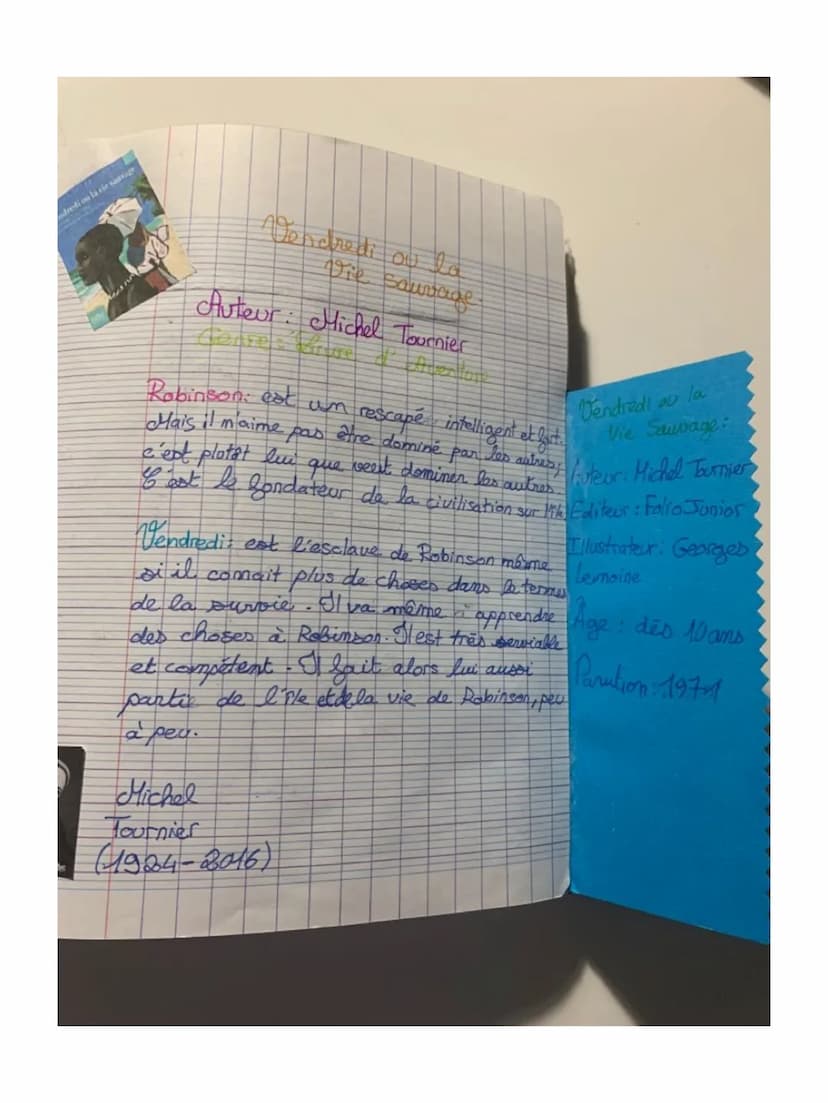 Vendredi ou la vie sauvage
Vendredi ou la
Vie Sauvage.
Auteur : Michel Tournier
Genre : Livre d'Aventure
Robinson: est un rescapé intelligent et fort.
Mais il n'aime pas être dominé par les autres,
c'est plotôt lui que veut dominer les autres.
C'est le fondateur de la civilisation sur l'île
Vendredi: est l'esclave de Robinson même
si il connait plus de choses dans le termes
de la survie. Il va même apprendre
des choses à Robinson. Il est très serviable
et compétent. Il fait alors lui aussi
partie de l'île et de la vie de Robinson, peu
à peu.
Michel
Tournier
(1924-2016)
Vendredi ou la
Vie Sauvage:
Auteur: Michel Tournier
Editeur : Folio Junior
Illustrateur: Georges
Lemoine
Âge : dès 10 ans
Parution: 1971